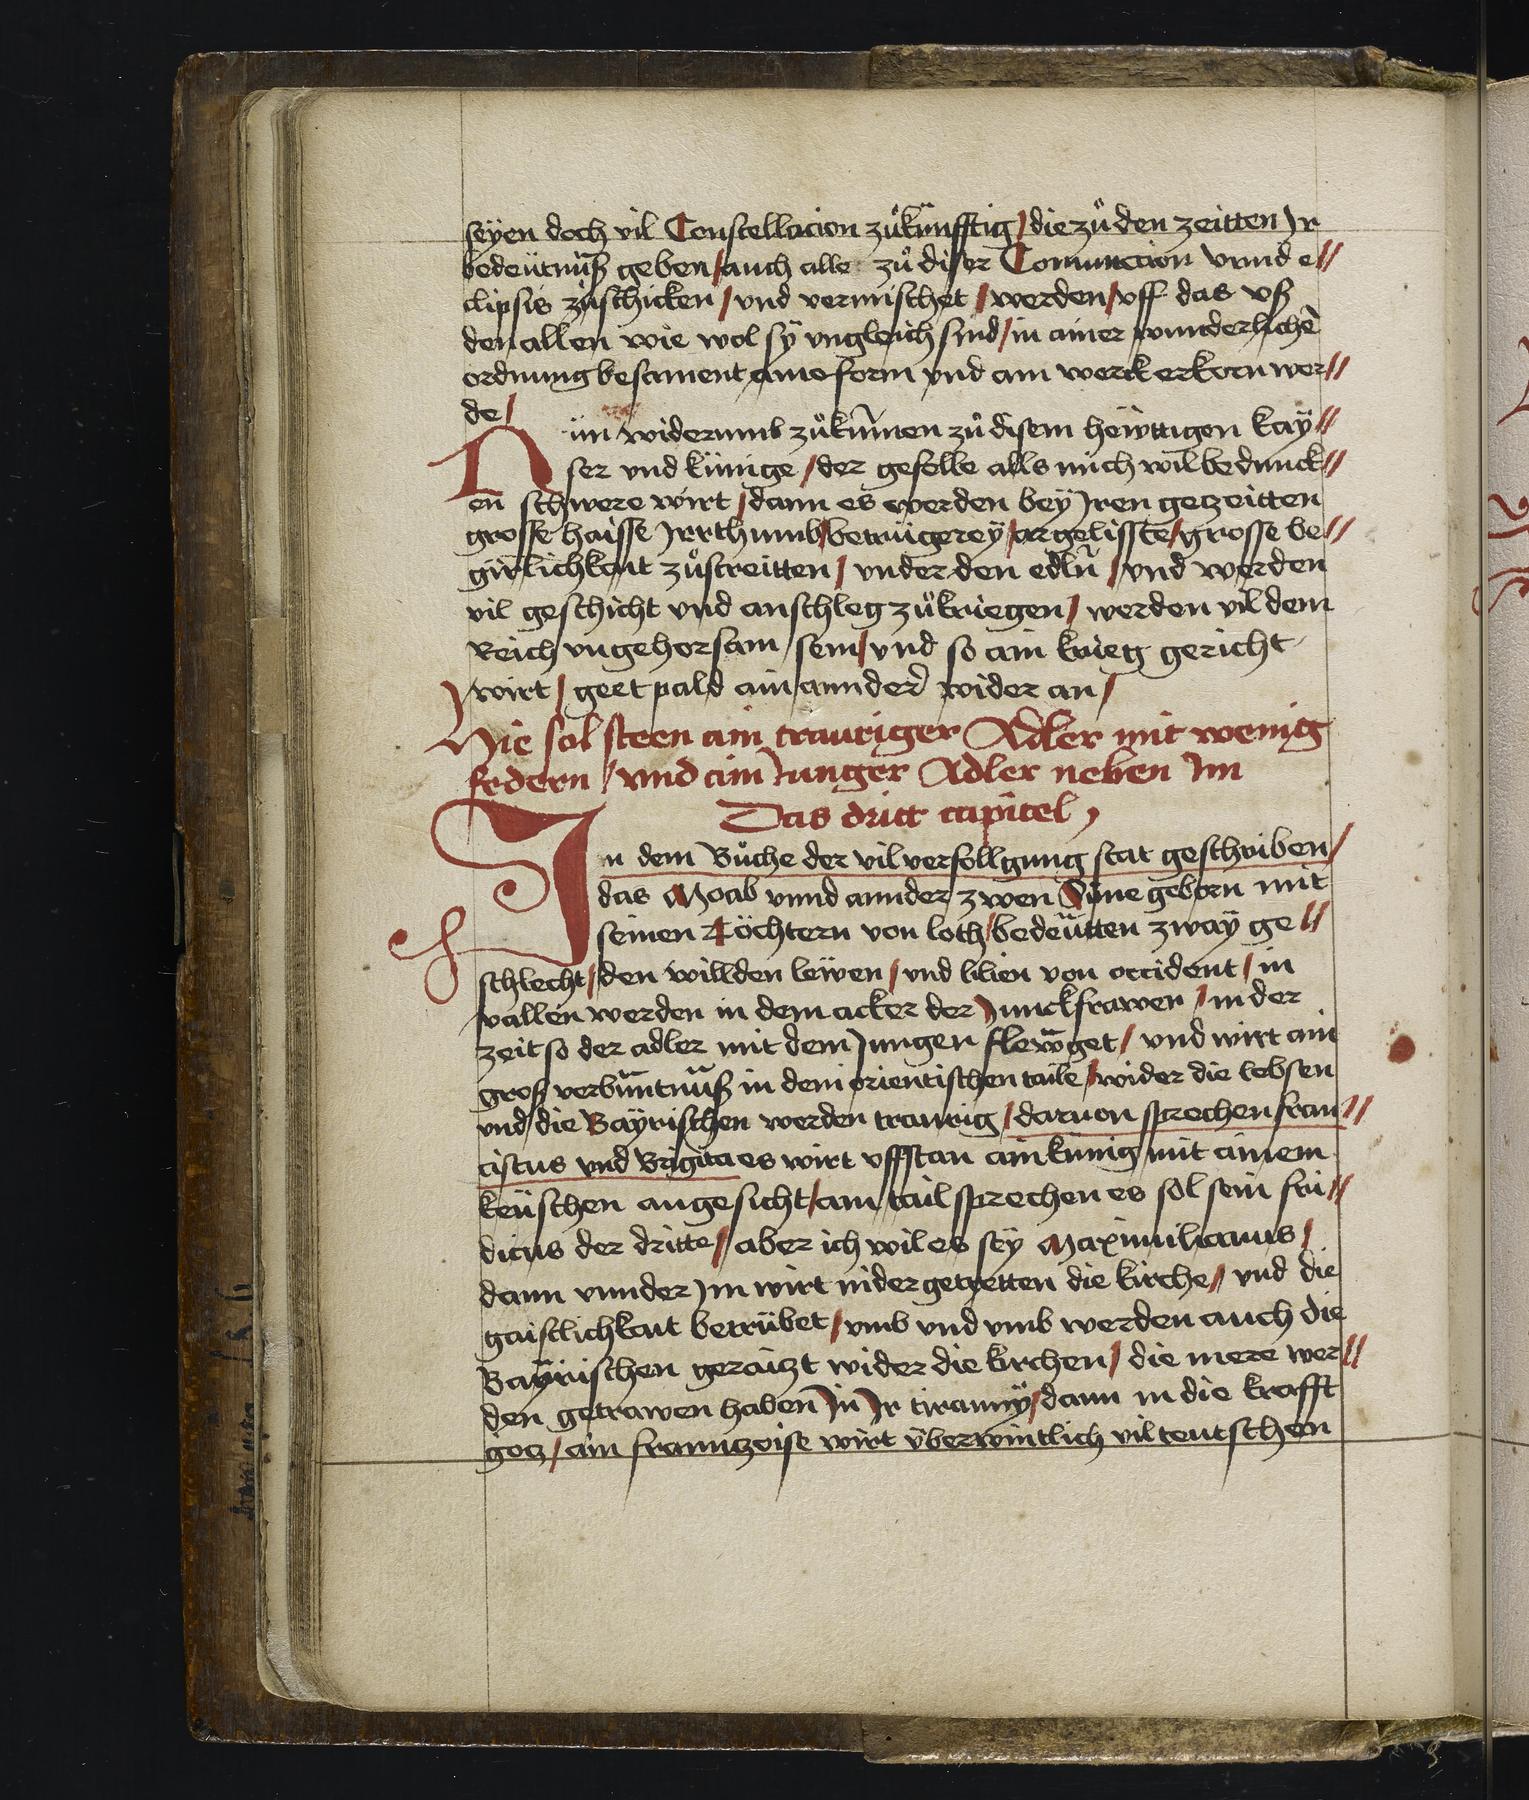 seÿen doch vil Constellacion zůkünfftig / die zů den zeitten Jr
bedeütnuß geben / auch alle zů diser Coniunccion vnnd e //
clipsis zůschicken / vnd vermischet / werden / vff das vß
den allen wie wol sÿ vngleich sind / in ainer wunderlichē
ordnung besament aine form vnd ain werck erkorn wer //
de /
Nun widerumb zůkum̄en zů disem heẅttigen kaÿ //
ser vnd künige / der geselle alls mich wil bedunck //
en schwere wirt / dann es werden beÿ Jren gezeitten
grosse haisse Jrrthumb / betrügereÿ / argelisste / grosse be //
girlichkait zůstreitten / vnder den edln̄ / vnd werden
vil geschicht vnd anschleg zůkriegen / werden vil dem
Reich vngehorsam sein / vnd so ain krieg gericht
wirt / geet pald ain annder wider an /
Hie sol steen ain trauriger Adler mit wenig
federn / vnd ain Junger Adler neben Jm
Das dritt capitel ,
In dem Bůche der vil verfollgung stat geschriben /
das Moab vnnd annder zwen Süne geborn mit
seinen Töchtern von loth / bedeütten zwaÿ ge //
schlecht / den willden leẅen / vnd lilien von occident / in
vallen werden in dem acker der Junckfrawen / in der
zeit so der adler mit dem Jungen fleẅget / vnd wirt ain
groß verbüntnuß in dem orientischen taile / wider die lebsten
vnd die Baÿrischen werden traurig / daruon sprechen fran //
ciscus vnd Brigita es wirt vffstan ain künig mit ainem
keüschen angesicht / ain tail sprechen es sol sein fri //
dicus der dritte / aber ich wil es seÿ Maximilianus /
dann vnnder Jm wirt nidergetretten die kirche / vnd die
gaistlichkait betrübet / vmb vnd vmb werden auch die
Baÿrischen geraitzt wider die kirchen / die mere wer //
den getrawen haben Jn Jr tirannÿ / dann in die krafft
gotz / ain franntzoise wirt überwintlich vil teutschen